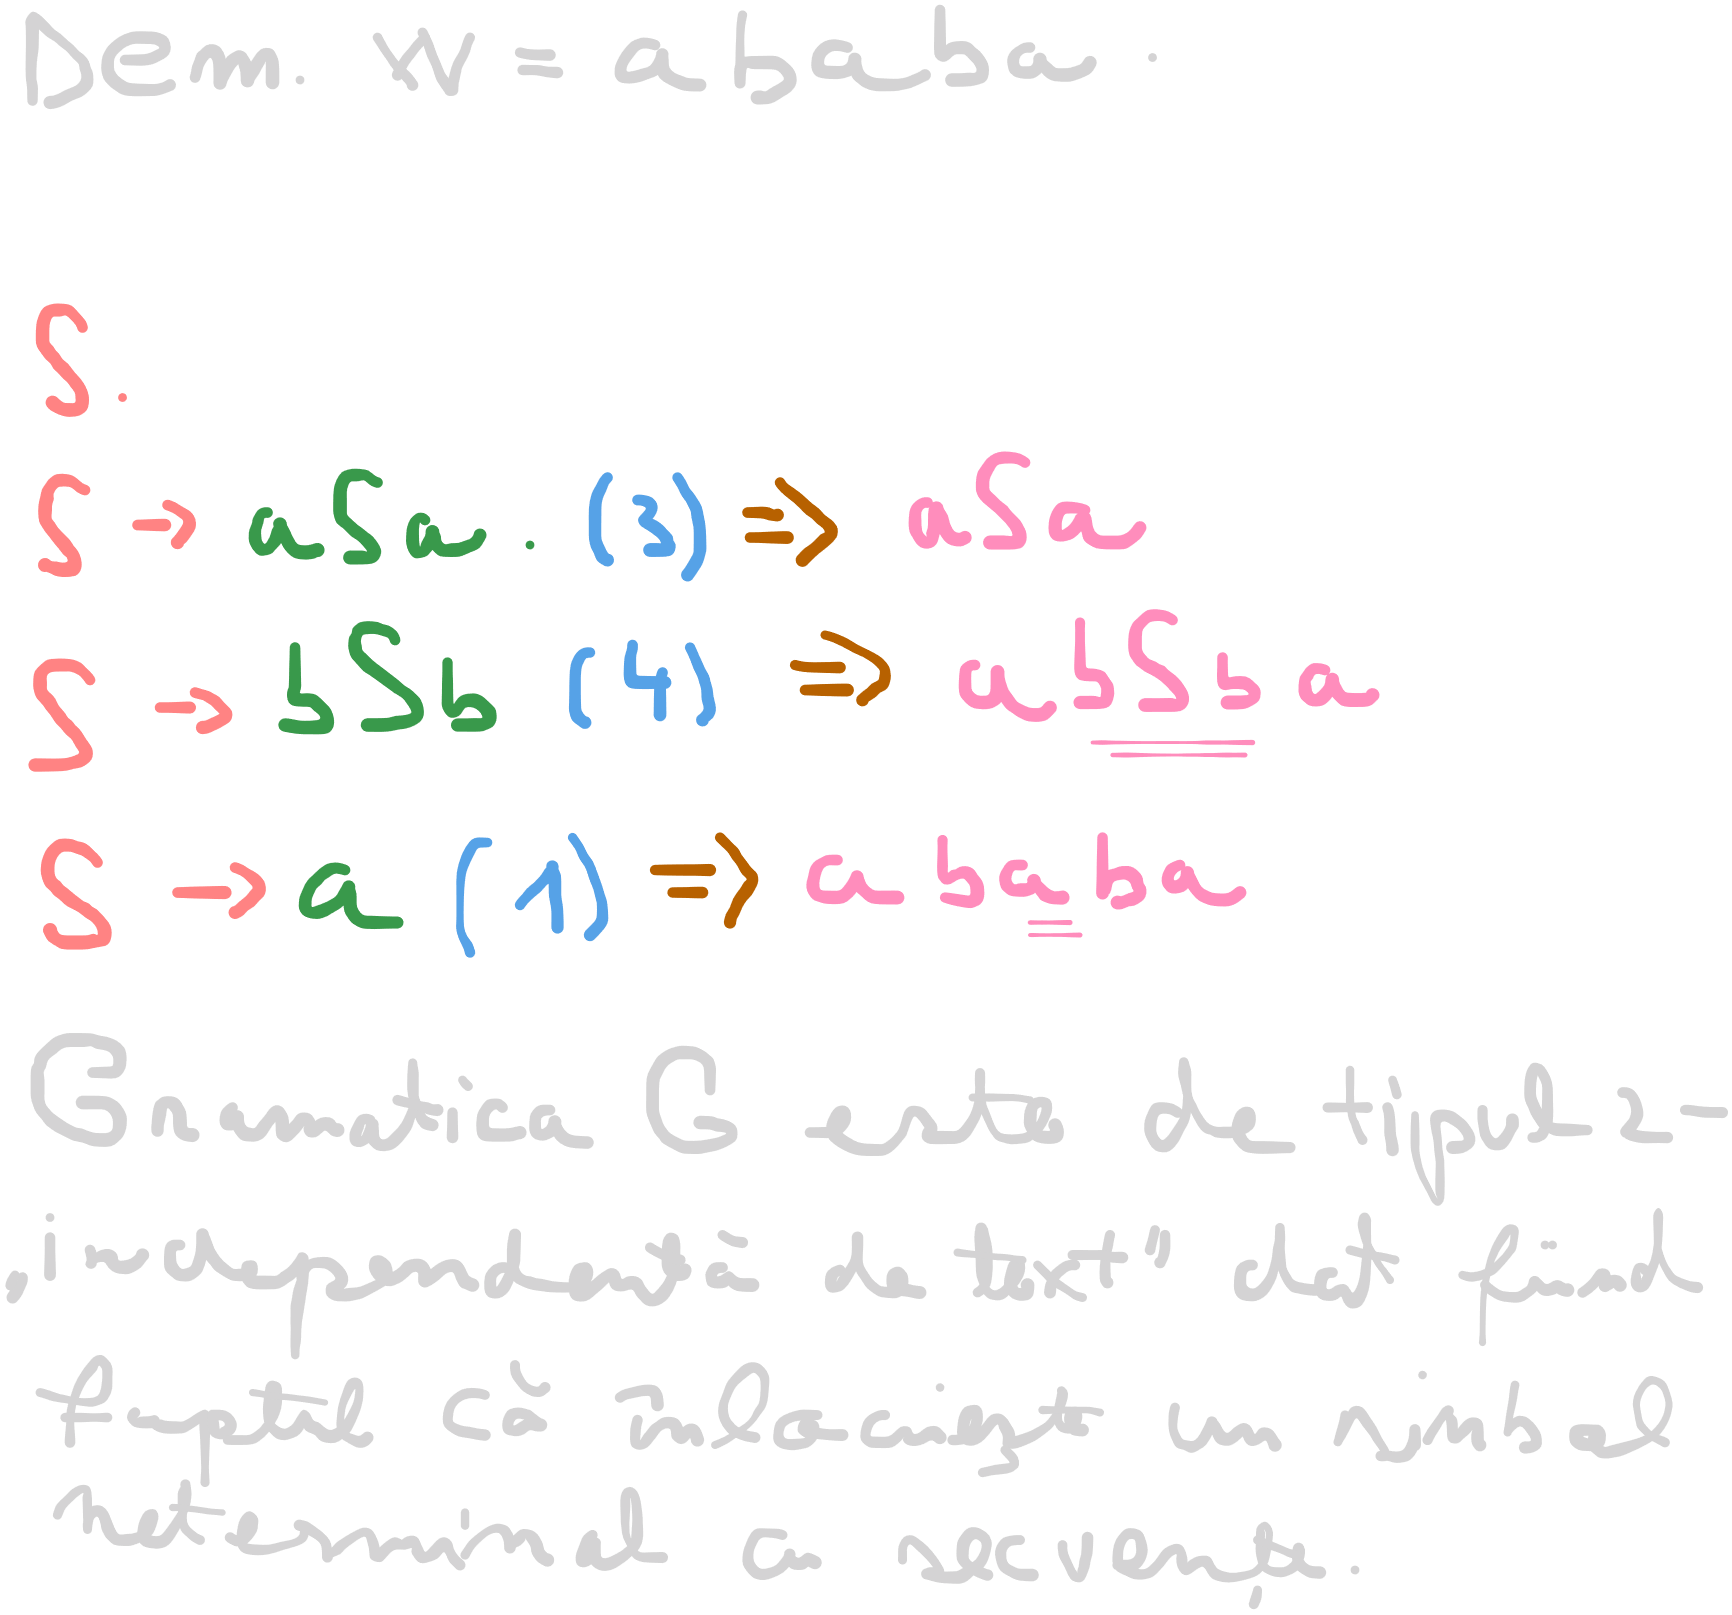 Dem. w = ababa.
S.
S → aSa. (3) ⇒ aSa
S → bSb (4) ⇒ abSba
S → a (1) ⇒ ababa
Gramatica G este de tipul 2-
„independentă de text" dat fiind
faptul că înlocuiește un simbol
neterminal cu secvențe.